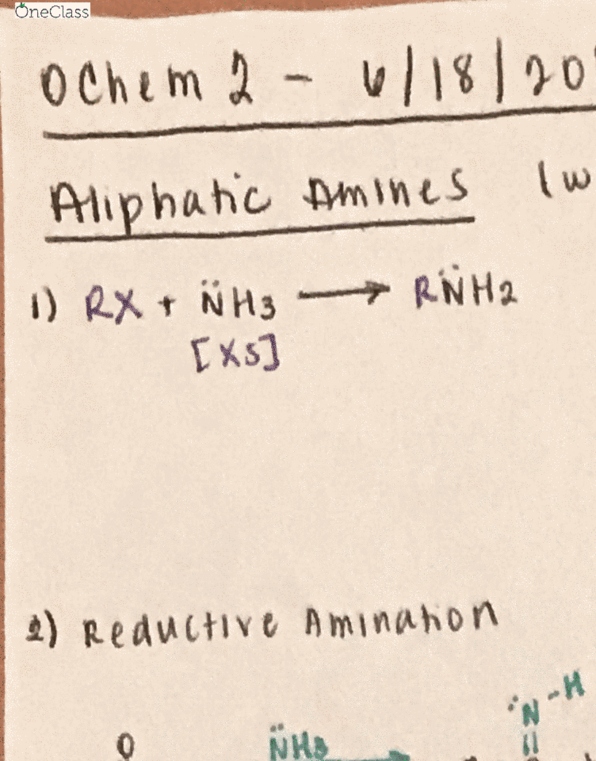 OneClass
OChem 2 - 6/18/20
Aliphatic Amines (w
1) RX + N̈H3 → RN̈H2
[XS]
2) Reductive Amination
:N-H
O N̈H3 →